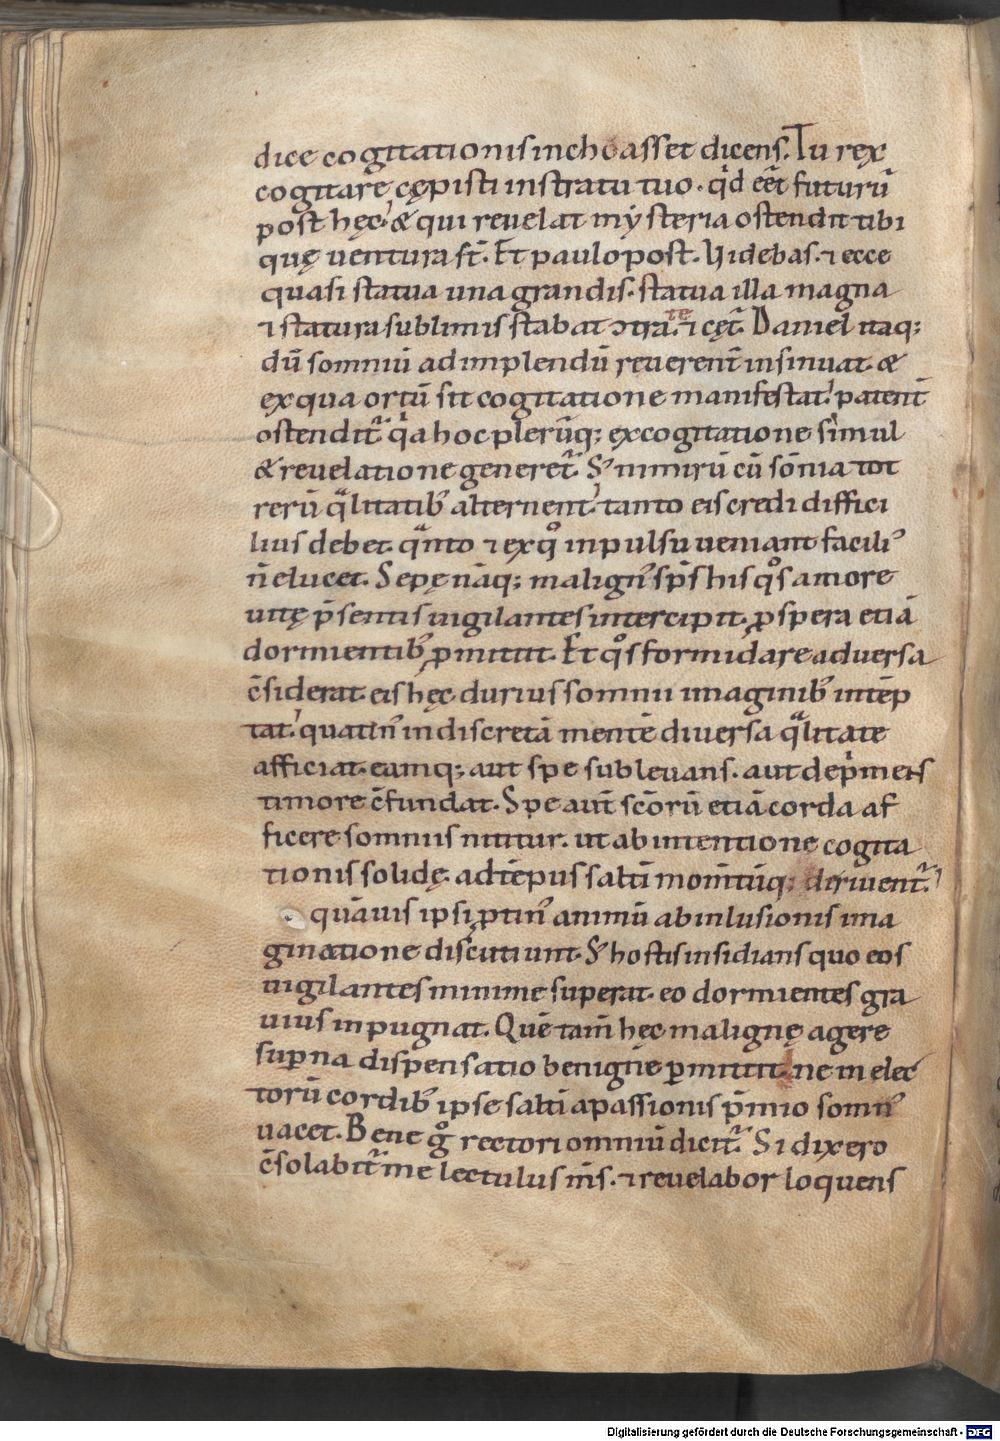 dice cogitationis inchoasset dicens. Tu rex
cogitare cępisti in stratu tuo. qd eēt futurū
post hęc. & qui revelat mysteria ostendit tibi
quę ventura st̄. Et paulo post. Videbas. ⁊ ecce
quasi statua una grandis. statua illa magna
⁊ statura sublimis stabat ↄtra te. ⁊ cęt̄. Daniel itaq;
dū somniū adimplendū reverent̄ insinuat. &
ex qua ortū sit cogitatione manifestat. patent̄
ostendit᷑ qa hoc plerūq; ex cogitatione simul
& revelatione generet᷑. S; nimirū cū sōnia tot
rerū qlitatib; alternent᷑. tanto eis credi diffici
lius debet. qnto ⁊ ex qo inpulsu veniant facili᾽
n̄ elucet. Sepę nāq; malign᾽ sp̄s his qos amore
vitę p̄sentis vigilantes intercipit. ꝓspera etiā
dormientib; ꝓmittit. Et qos formidare adversa
c̄siderat. eis hęc durius somnii imaginib; intēp
tat. quatin᾽ indiscretā mentē diversa qlitate
afficiat. eamq; aut spe sublevans. aut deprimens
timore c̄fundat. Sepe aut̄ scōrū etiā corda af
ficere somniis nititur. ut ab intentione cogita
tionis solidę. ad tēpus saltī momtūq; dirivent᷑.
quāvis ipsi ꝓtin᾽ animū ab inlusionis ima
ginatione discutiunt. S; hostis insidians quo eos
vigilantes minime superat. eo dormientes gra
vius inpugnat. Quē tam̄ hęc malignę agere
supna dispensatio benigne ꝑmittit. ne in elec
torū cordib; ipse saltī a passionis p̄mio somn᾽
vacet. Bene go rectori omniū dicit᷑. Si dixero
c̄solabit᷑ me lectulus m̄s. ⁊ revelabor loquens
Digitalisierung gefördert durch die Deutsche Forschungsgemeinschaft - DFG